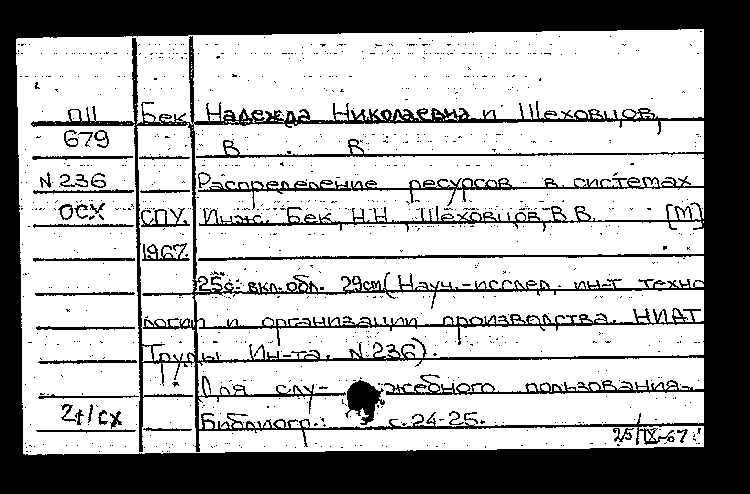 ПII Бек Надежда Николаевна и Шеховцов,
679 В В
N 236 Распределение ресурсов в системах
ОСХ СПУ. Инж. Бек, Н.Н., Шеховцов, В.В. [М]
1967.
25с. вкл. обл. 29см (Науч.-исслед. ин-т техно
логии и организации производства НИАТ
Труды Ин-та. N.236).
Для слу- жебного пользования.
2t/сх Библиогр.: с. 24-25.
25/IX-67